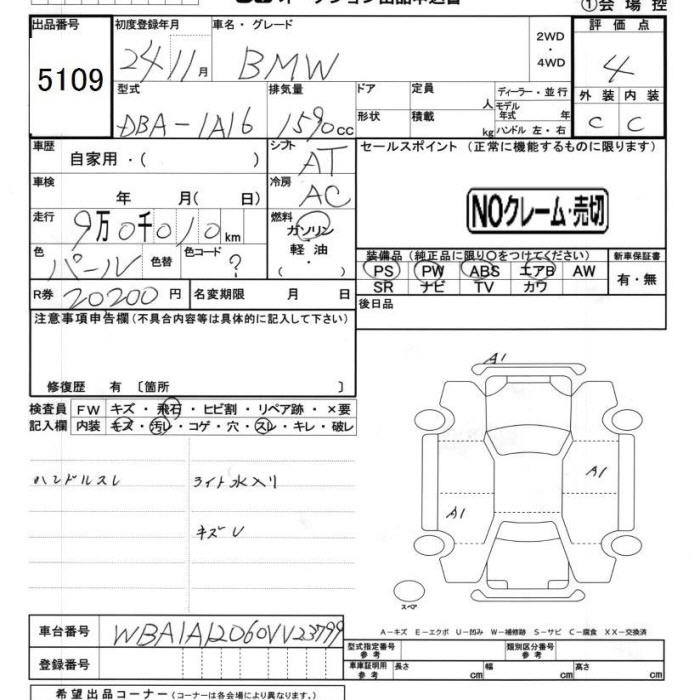 オークション出品申込書 ①会場控
出品番号 初度登録年月 車名・グレード 2WD・4WD 評価点
5109 24 11月 BMW 4
型式 排気量 ドア 定員 人 ディーラー・並行 外装 内装
DBA-1A16 1590cc 形状 積載 kg モデル年式 年 ハンドル 左・右 C C
車歴 自家用・( ) シフト AT セールスポイント (正常に機能するものに限ります)
車検 年 月( 日) 冷房 AC
NOクレーム・売切
走行 9万0千010km 燃料 ガソリン 軽油・( )
色 パール 色替 色コード ? 装備品 (純正品に限り○をつけてください) 新車保証書
PS PW ABS エアB AW 有・無
SR ナビ TV カワ
R券 20200円 名変期限 月 日 後日品
注意事項申告欄 (不具合内容等は具体的に記入して下さい)
修復歴 有 〔箇所 〕
検査員記入欄 FW キズ・飛石・ヒビ割・リペア跡・×要
内装 キズ・汚レ・コゲ・穴・スレ・キレ・破レ
ハンドルスレ ライト水入り
キズU
A1
A1
A1
スペア
A-キズ E-エクボ U-凹み W-補修跡 S-サビ C-腐食 XX-交換済
車台番号 WBA1A12060VV23799
型式指定番号 参考 類別区分番号 参考
登録番号 車庫証明用 参考 長さ cm 幅 cm 高さ cm
希望出品コーナー (コーナーは各会場により異なります。)